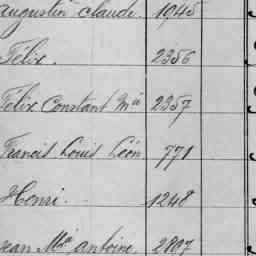 Augustin Claude. 1945
Félix. 2356
Félix Constant Mie 2357
Francis Louis Léon 771
Henri. 1248
Jean Mie Antoine. 2807